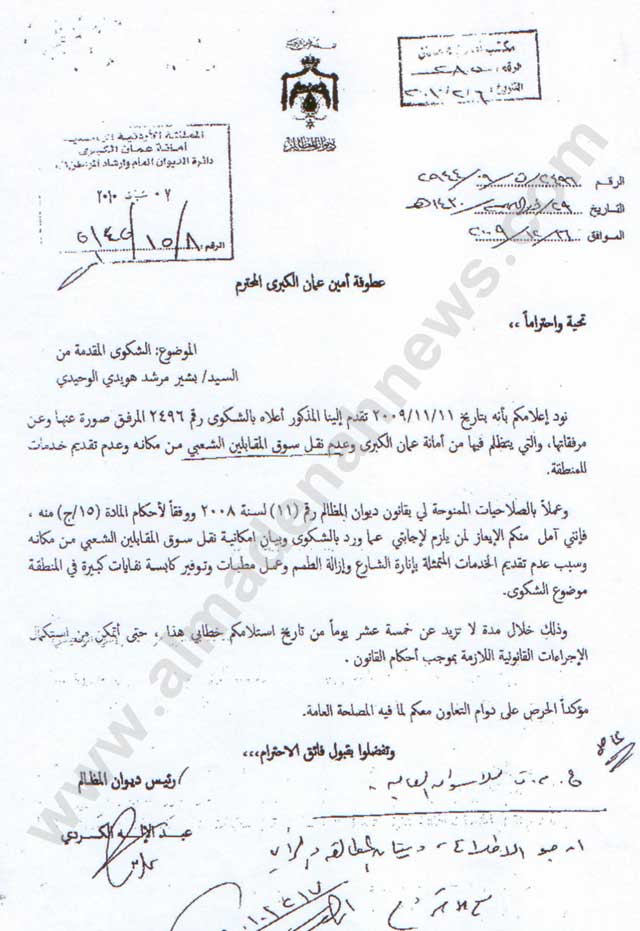 مكتب
ديوان المظالم
أمانة عمان الكبرى
دائرة الديوان العام وارشاد
٠٧ ٢٠١٠
الرقم: ١٥/٨
الرقم
التاريخ ١٤٣٠هـ
الموافق ٢٠٠٩/١٢/١٦
عطوفة أمين عمان الكبرى المحترم
تحية واحتراماً ،،
الموضوع: الشكوى المقدمة من
السيد/ بشير مرشد هويدي الوحيدي
نود إعلامكم بأنه بتاريخ ٢٠٠٩/١١/١١ تقدم إلينا المذكور أعلاه بالشكوى رقم ٢٤٩٦ المرفق صورة عنها وعن
مرفقاتها، والتي يتظلم فيها من أمانة عمان الكبرى وعدم نقل سوق المقابلين الشعبي من مكانه وعدم تقديم خدمات
للمنطقة.
وعملاً بالصلاحيات الممنوحة لي بقانون ديوان المظالم رقم (١١) لسنة ٢٠٠٨ ووفقاً لأحكام المادة (١٥/ج) منه ،
فإنني آمل منكم الإيعاز لمن يلزم لإجابتي عما ورد بالشكوى وبيان امكانية نقل سوق المقابلين الشعبي من مكانه
وسبب عدم تقديم الخدمات المتمثلة بإنارة الشارع وإزالة الطمم وعمل مطبات وتوفير كابسة نفايات كبيرة في المنطقة
موضوع الشكوى.
وذلك خلال مدة لا تزيد عن خمسة عشر يوماً من تاريخ استلامكم خطابي هذا ، حتى أتمكن من إستكمال
الإجراءات القانونية اللازمة بموجب أحكام القانون .
مؤكداً الحرص على دوام التعاون معكم لما فيه المصلحة العامة.
وتفضلوا بقبول فائق الاحترام،،،
رئيس ديوان المظالم
عبد الإله الكردي
www.almadenahnews.com